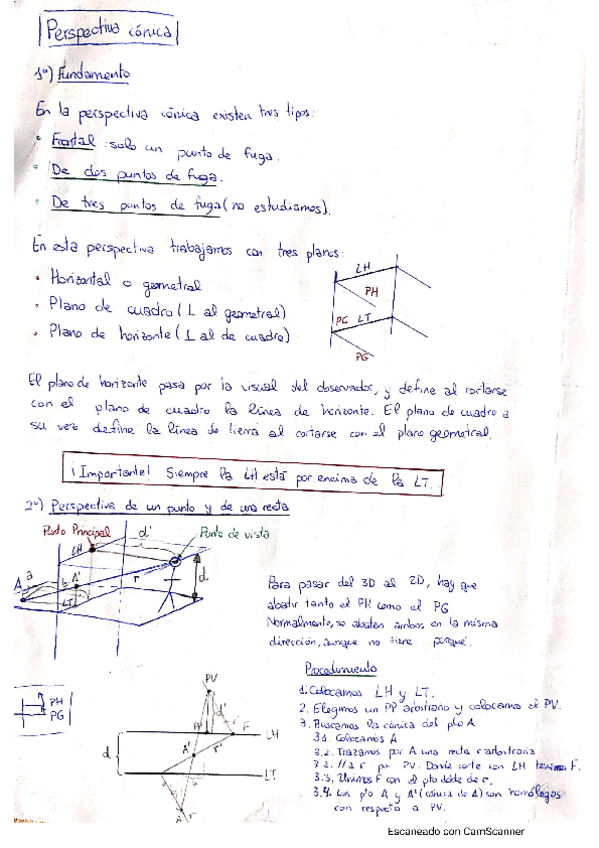 Perspectiva cónica
1º) Fundamento
En la perspectiva cónica existen tres tipos:
• Frontal: solo un punto de fuga.
• De dos puntos de fuga.
• De tres puntos de fuga (no estudiamos).
En esta perspectiva trabajamos con tres planos:
• Horizontal o geometral
• Plano de cuadro (⊥ al geometral)
• Plano de horizonte (⊥ al de cuadro)
LH
PH
PC LT
PG
El plano de horizonte pasa por la visual del observador, y define al cortarse
con el plano de cuadro la línea de horizonte. El plano de cuadro a
su vez define la línea de tierra al cortarse con el plano geometral.
¡Importante! Siempre la LH está por encima de la LT.
2º) Perspectiva de un punto y de una recta
Punto Principal d' Punto de vista
LH
A a b A' r d
LT
Para pasar del 3D al 2D, hay que
abatir tanto el PH como el PG
Normalmente, se abaten ambos en la misma
dirección, aunque no tiene porqué.
Procedimiento
1. Colocamos LH y LT.
2. Elegimos un PP arbitrario y colocamos el PV.
3. Buscamos la cónica del pto A
3.1. Colocamos A
3.2. Trazamos por A una recta r arbitraria
3.2. // a r por PV. Donde corte con LH tenemos F.
3.3. Unimos F con el pto doble de r.
3.4. Los pto A y A' (cónica de A) son homólogos
con respecto a PV.
PH
PG
PV
d'
PP F
LH
A' r'
d
LT
A r
Escaneado con CamScanner